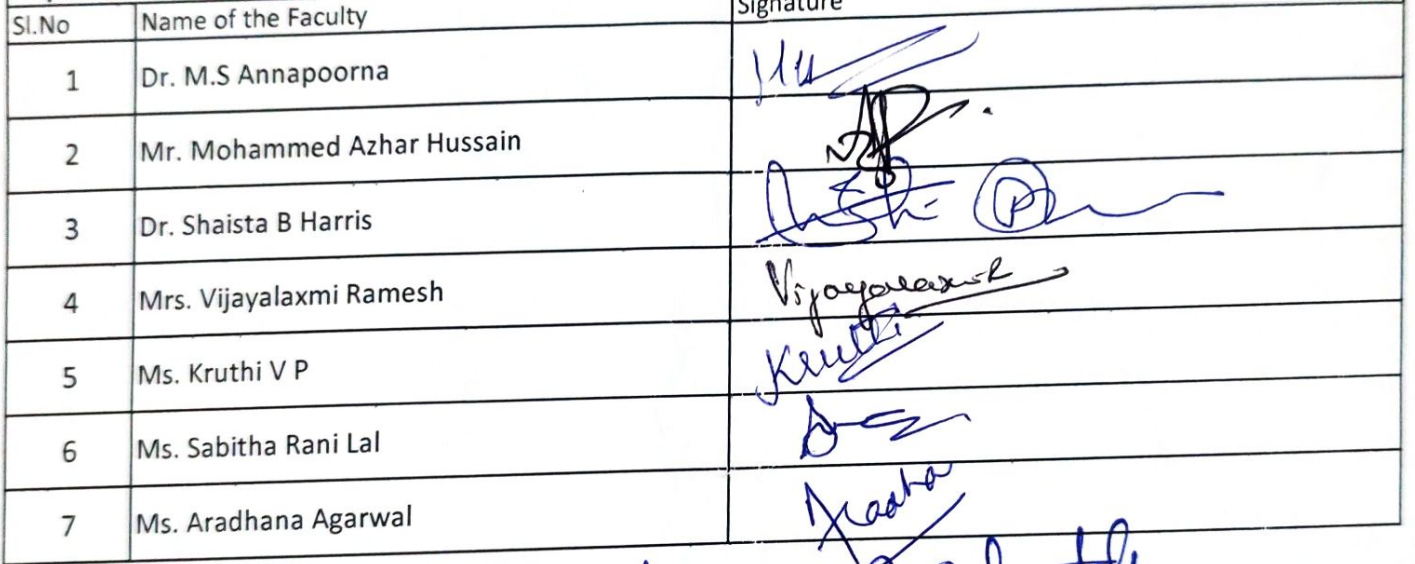 Sl.No Name of the Faculty Signature
1 Dr. M.S Annapoorna
2 Mr. Mohammed Azhar Hussain
3 Dr. Shaista B Harris
4 Mrs. Vijayalaxmi Ramesh Vijayalaxmi R
5 Ms. Kruthi V P Kruthi
6 Ms. Sabitha Rani Lal
7 Ms. Aradhana Agarwal